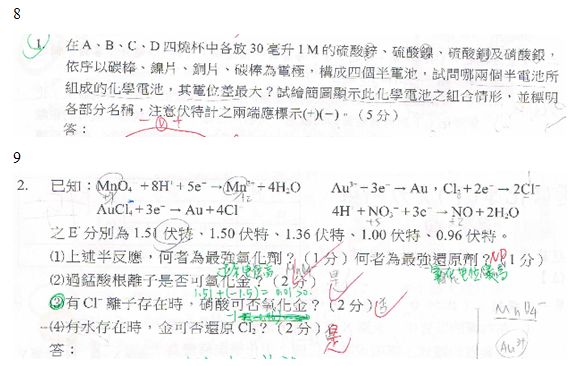 8
1. 在A、B、C、D四燒杯中各放30毫升1M的硫酸鋅、硫酸鎳、硫酸銅及硝酸銀，
依序以碳棒、鎳片、銅片、碳棒為電極，構成四個半電池，試問哪兩個半電池所
組成的化學電池，其電位差最大？試繪簡圖顯示此化學電池之組合情形，並標明
各部分名稱，注意伏特計之兩端應標示(+)(−)。（5分）
答：
− V +
9
2. 已知：MnO₄⁻+8H⁺+5e⁻→Mn²⁺+4H₂O Au³⁺−3e⁻→Au，Cl₂+2e⁻→2Cl⁻
AuCl₄⁻+3e⁻→Au+4Cl⁻ 4H⁺+NO₃⁻+3e⁻→NO+2H₂O
+2 +5 +2
之E°分別為1.51伏特、1.50伏特、1.36伏特、1.00伏特、0.96伏特。
(1)上述半反應，何者為最強氧化劑？（1分）何者為最強還原劑？（1分）
MnO₄⁻ NO
(2)過錳酸根離子是否可氧化金？（2分）是
1.51+(−1.5)=0.01>0
(3)有Cl⁻離子存在時，硝酸可否氧化金？（2分）否
(4)有水存在時，金可否還原Cl₂？（2分）是
MnO₄⁻
Au³⁺
答：